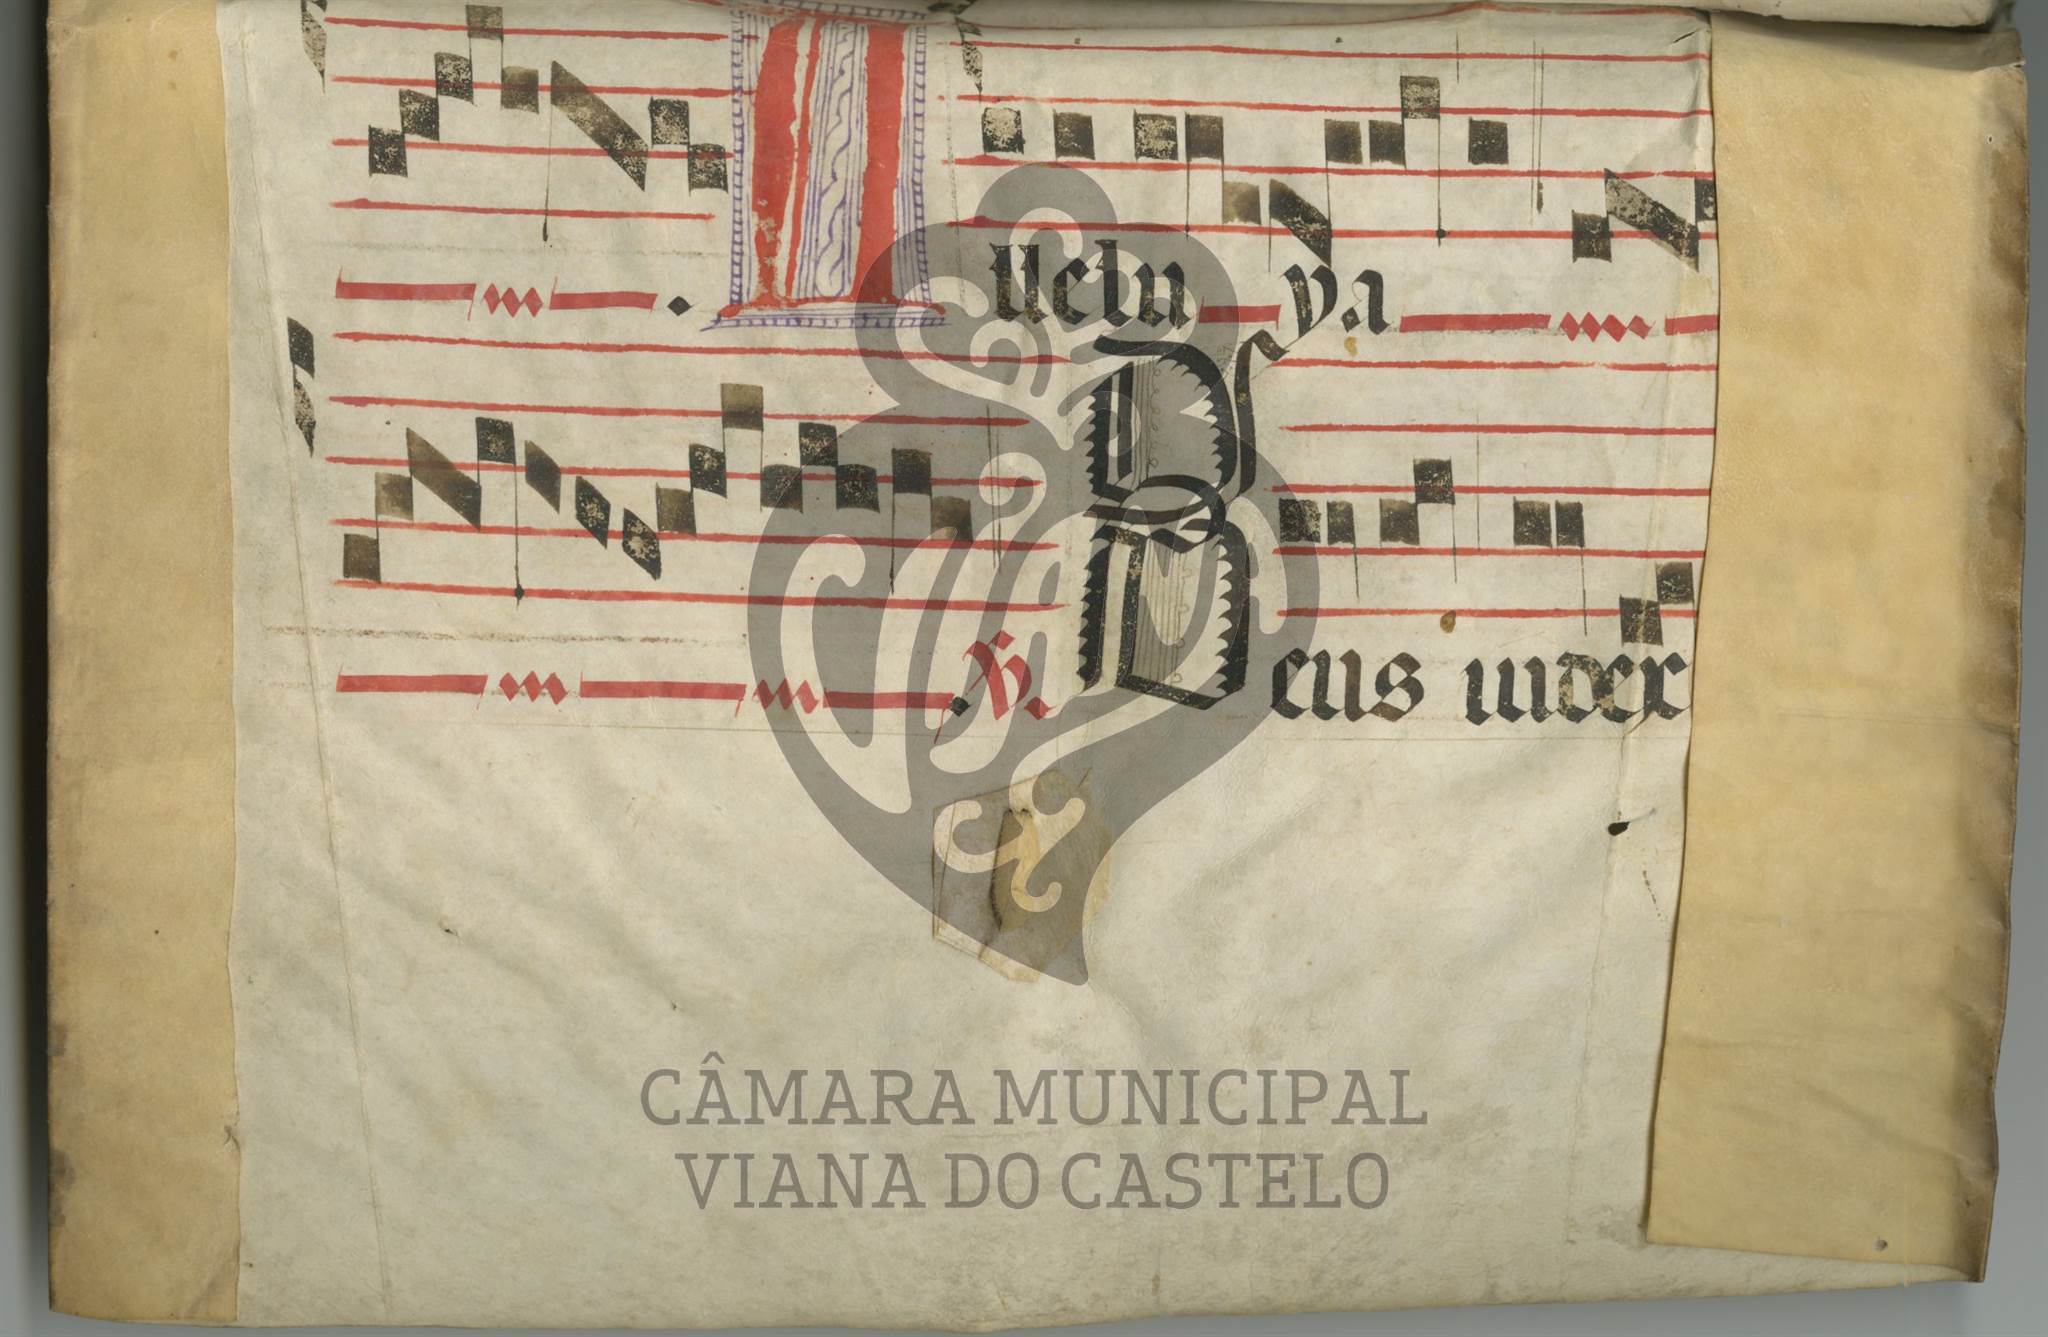 Alleluya
.℣. Deus iudex
CÂMARA MUNICIPAL
VIANA DO CASTELO